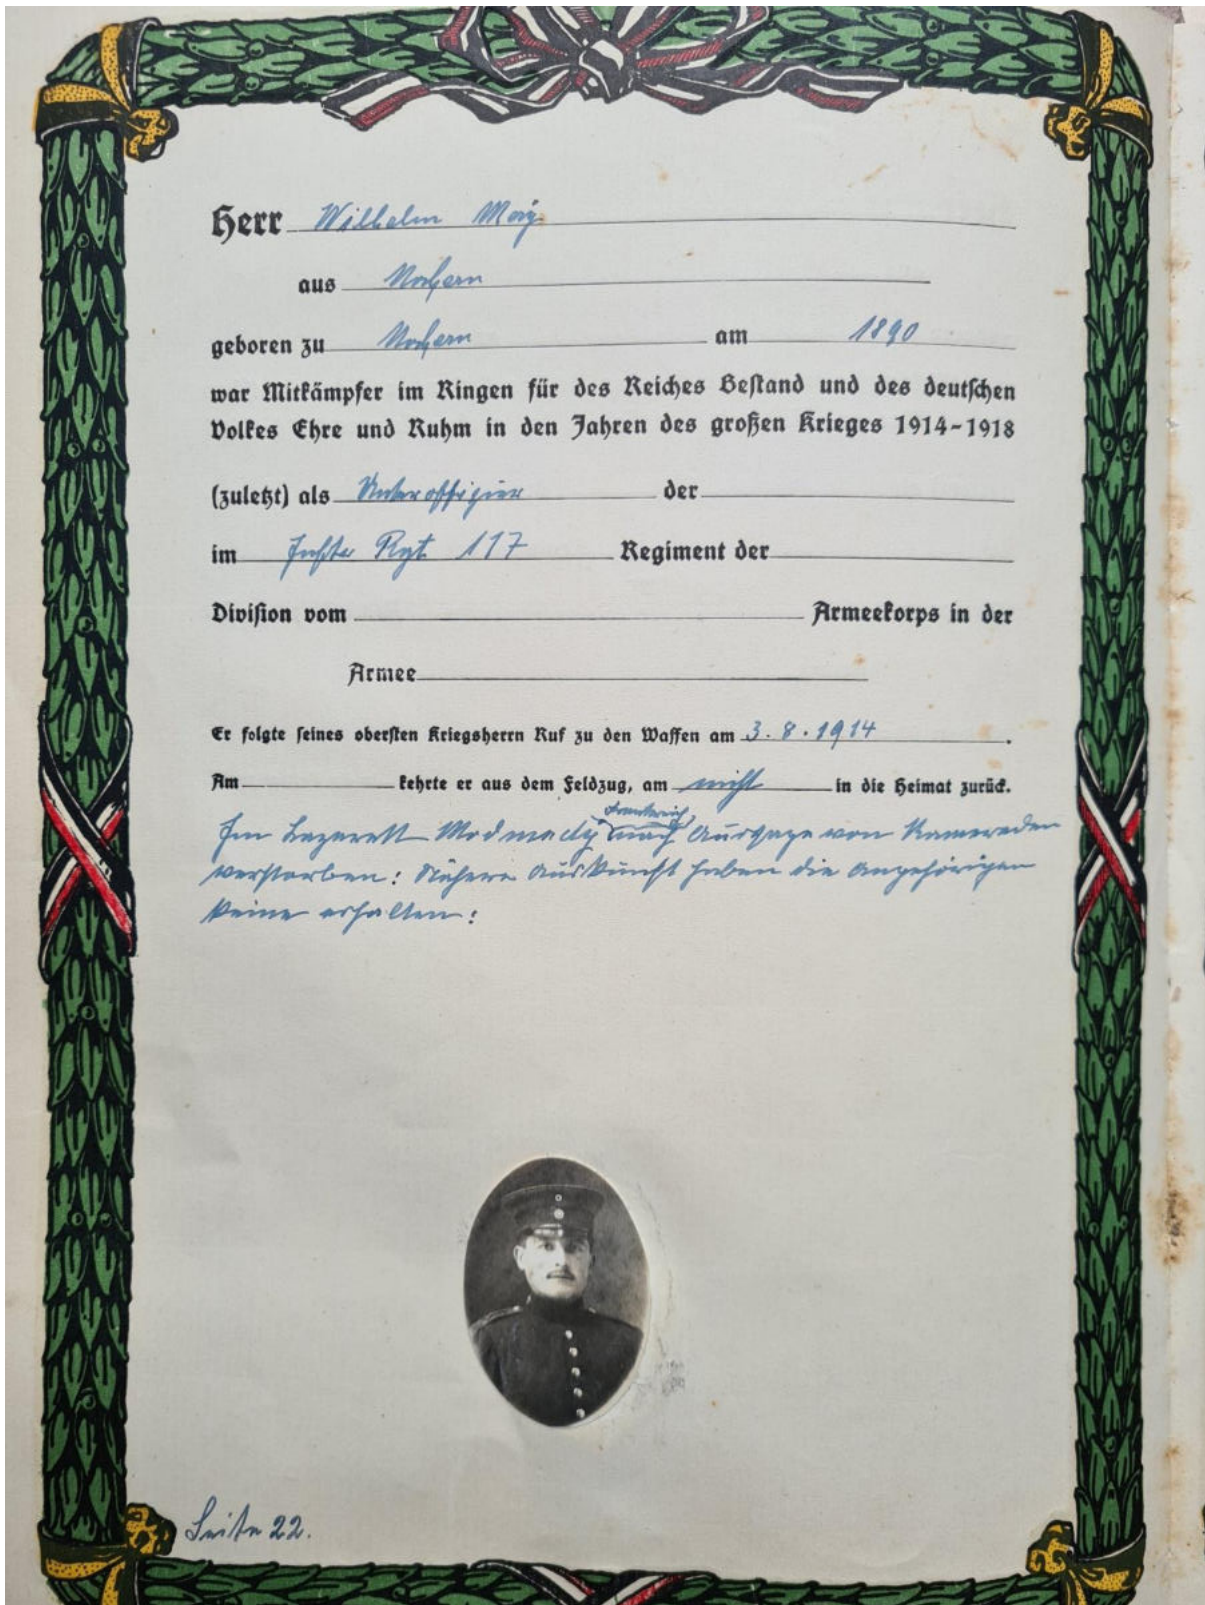 Herr Wilhelm May
aus Nochern
geboren zu Nochern am 1890
war Mitkämpfer im Ringen für des Reiches Bestand und des deutschen
Volkes Ehre und Ruhm in den Jahren des großen Krieges 1914-1918
(zuletzt) als Unteroffizier der
im Rgt 117 Regiment der
Division vom Armeekorps in der
Armee
Er folgte seines obersten Kriegsherrn Ruf zu den Waffen am 3.8.1914.
Am kehrte er aus dem Feldzug, am nicht in die Heimat zurück.
Frankreich
Im Lazarett nach Aussage von Kameraden
verstorben: Nähere Auskunft haben die Angehörigen
keine erhalten:
Seite 22.